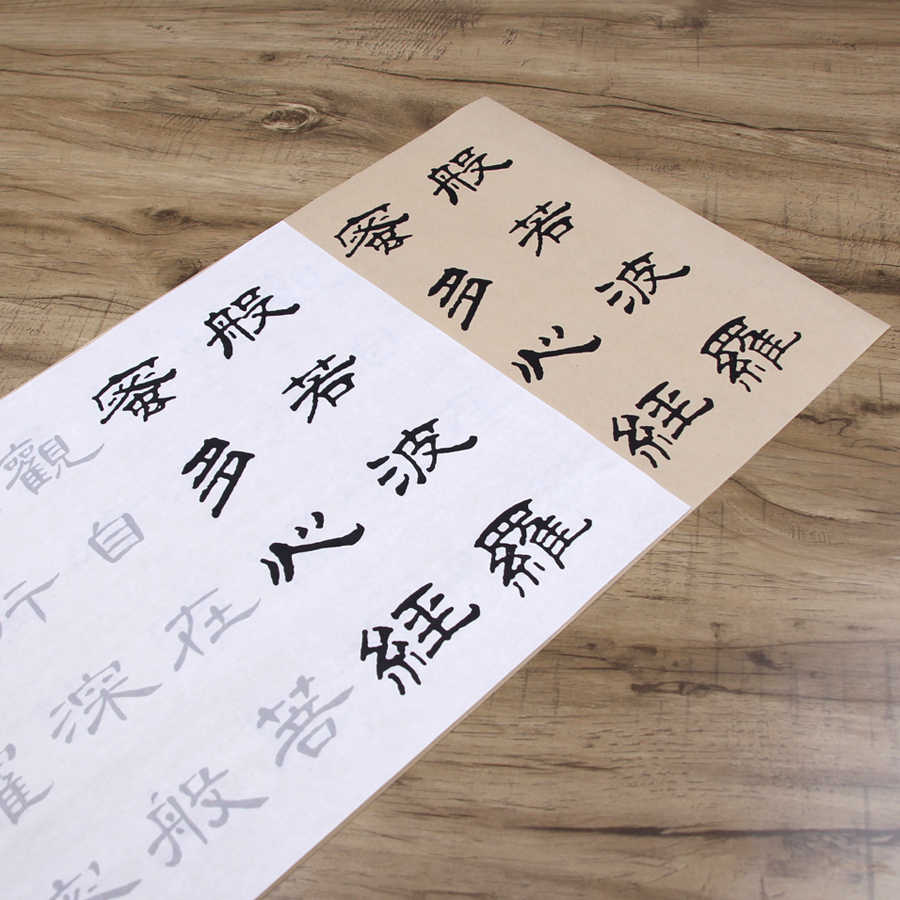 般若波羅
蜜多心經
般若波羅
蜜多心經
觀自在菩
行深般